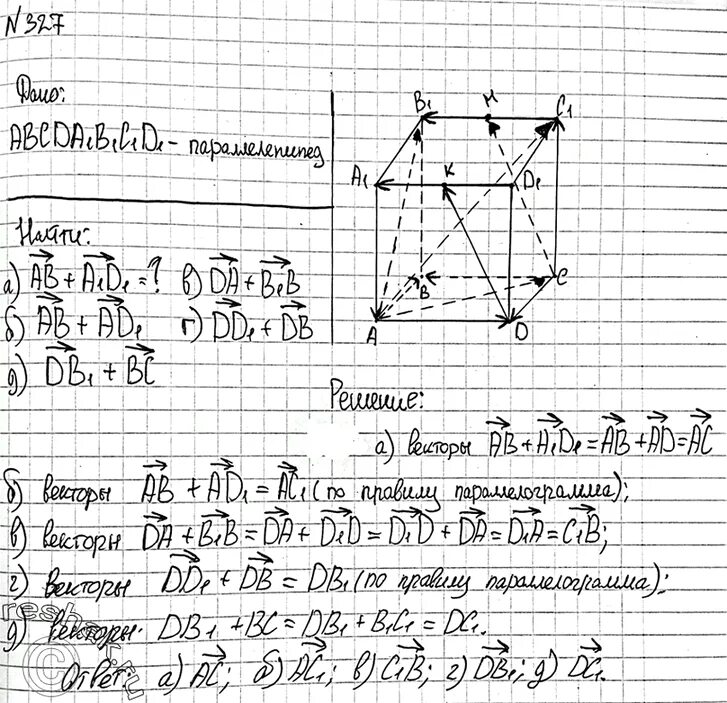 №327
Дано:
ABCDA₁B₁C₁D₁ – параллелепипед
Найти:
а) AB⃗ + A₁D₁⃗ = ? в) DA⃗ + B₁B⃗
б) AB⃗ + AD₁⃗ г) DD₁⃗ + DB⃗
д) DB₁⃗ + BC⃗
B₁ M C₁
A₁ K D₁
B C
A D
Решение:
а) векторы AB⃗ + A₁D₁⃗ = AB⃗ + AD⃗ = AC⃗
б) векторы AB⃗ + AD₁⃗ = AC₁⃗ (по правилу параллелограмма);
в) векторы DA⃗ + B₁B⃗ = DA⃗ + D₁D⃗ = D₁D⃗ + DA⃗ = D₁A⃗ = C₁B⃗;
г) векторы DD₁⃗ + DB⃗ = DB₁ (по правилу параллелограмма);
д) векторы DB₁ + BC = DB₁ + B₁C₁ = DC₁.
Ответ: а) AC⃗; б) AC₁⃗; в) C₁B⃗; г) DB₁⃗; д) DC₁⃗.
reshak.ru